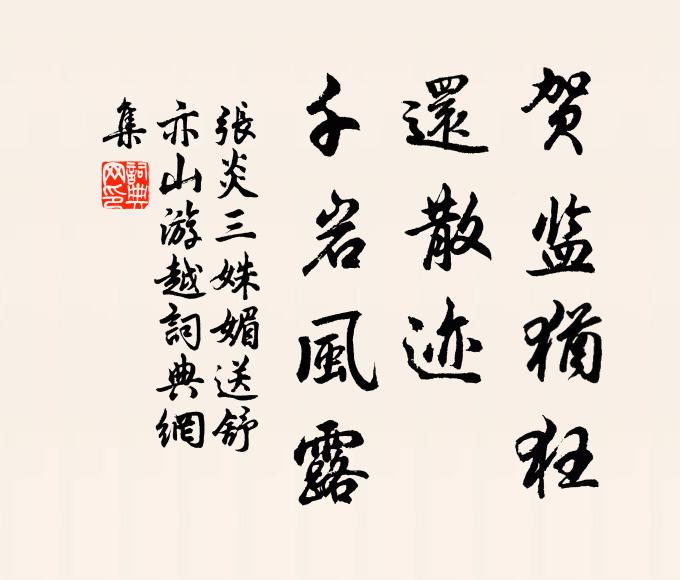 贺监犹狂
還散迹
千岩風露
張炎三姝媚送舒
亦山游越詞典網
集
詞典
网印